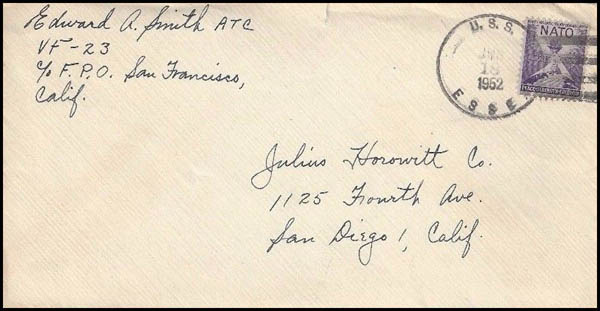 Edward A. Smith ATC
VF-23
c/o F.P.O. San Francisco,
Calif.
U.S.S.
18
1952
ESSE
NATO
Julius Horowitt Co.
1125 Fourth Ave.
San Diego 1, Calif.